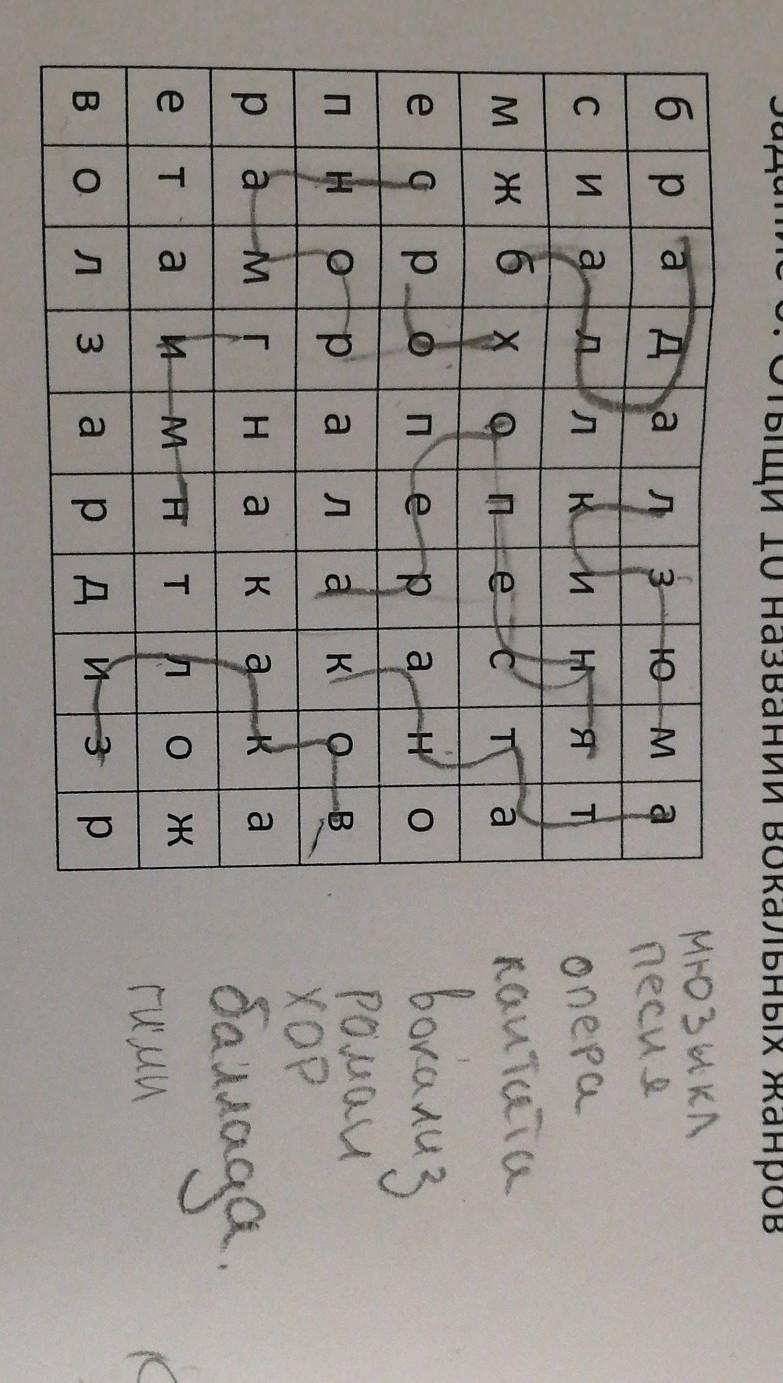 Задание Отыщи 10 названий вокальных жанров
б р а д а л з ю м а
с и а л л к и н я т
м ж б х о п е с т а
е с р о п е р а н о
п н о р а л а к о в
р а м г н а к а к а
е т а и м н т л о ж
в о л з а р д и з р
мюзикл
песня
опера
кантата
вокализ
роман
хор
баллада.
гимн